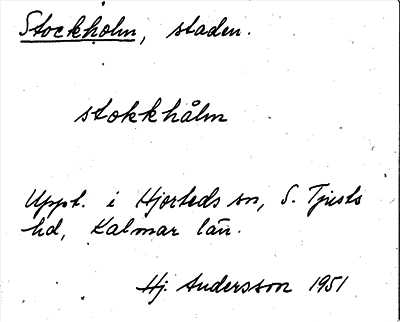 Stockholm, staden.
stokkhålm
Uppt. i Hjorteds sn, S. Tjusts
hd, Kalmar län.
Hj. Andersson 1951